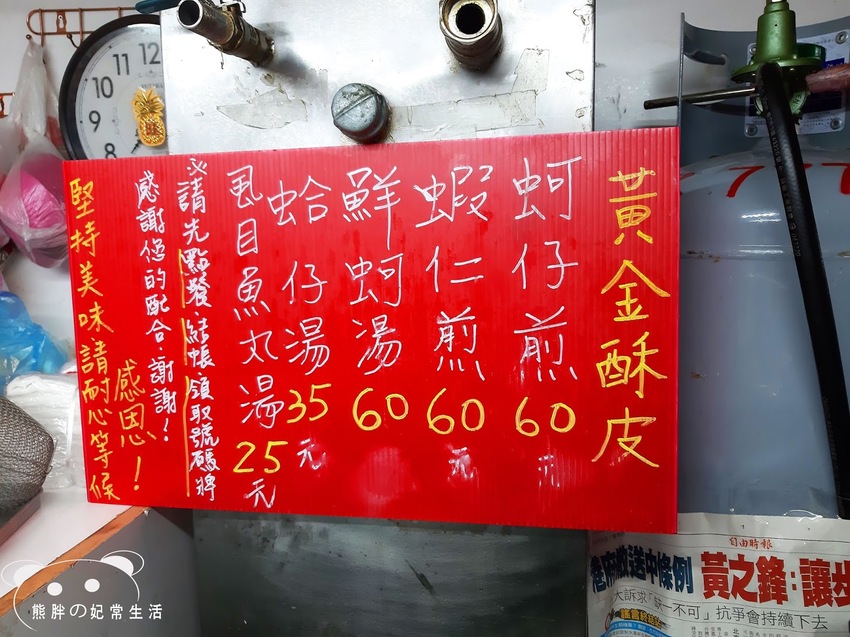 黃金酥皮
蚵仔煎60元
蝦仁煎60元
鮮蚵湯60
蛤仔湯35元
虱目魚丸湯25元
請先點餐.結帳.領取號碼牌
感謝您的配合.謝謝!
感恩!
堅持美味.請耐心等候
12
11
10
9
8
7
旺
自由時報
港府撤送中條例
黃之鋒:讓步
大訴求「缺一不可」抗爭會持續下去
熊胖の妃常生活